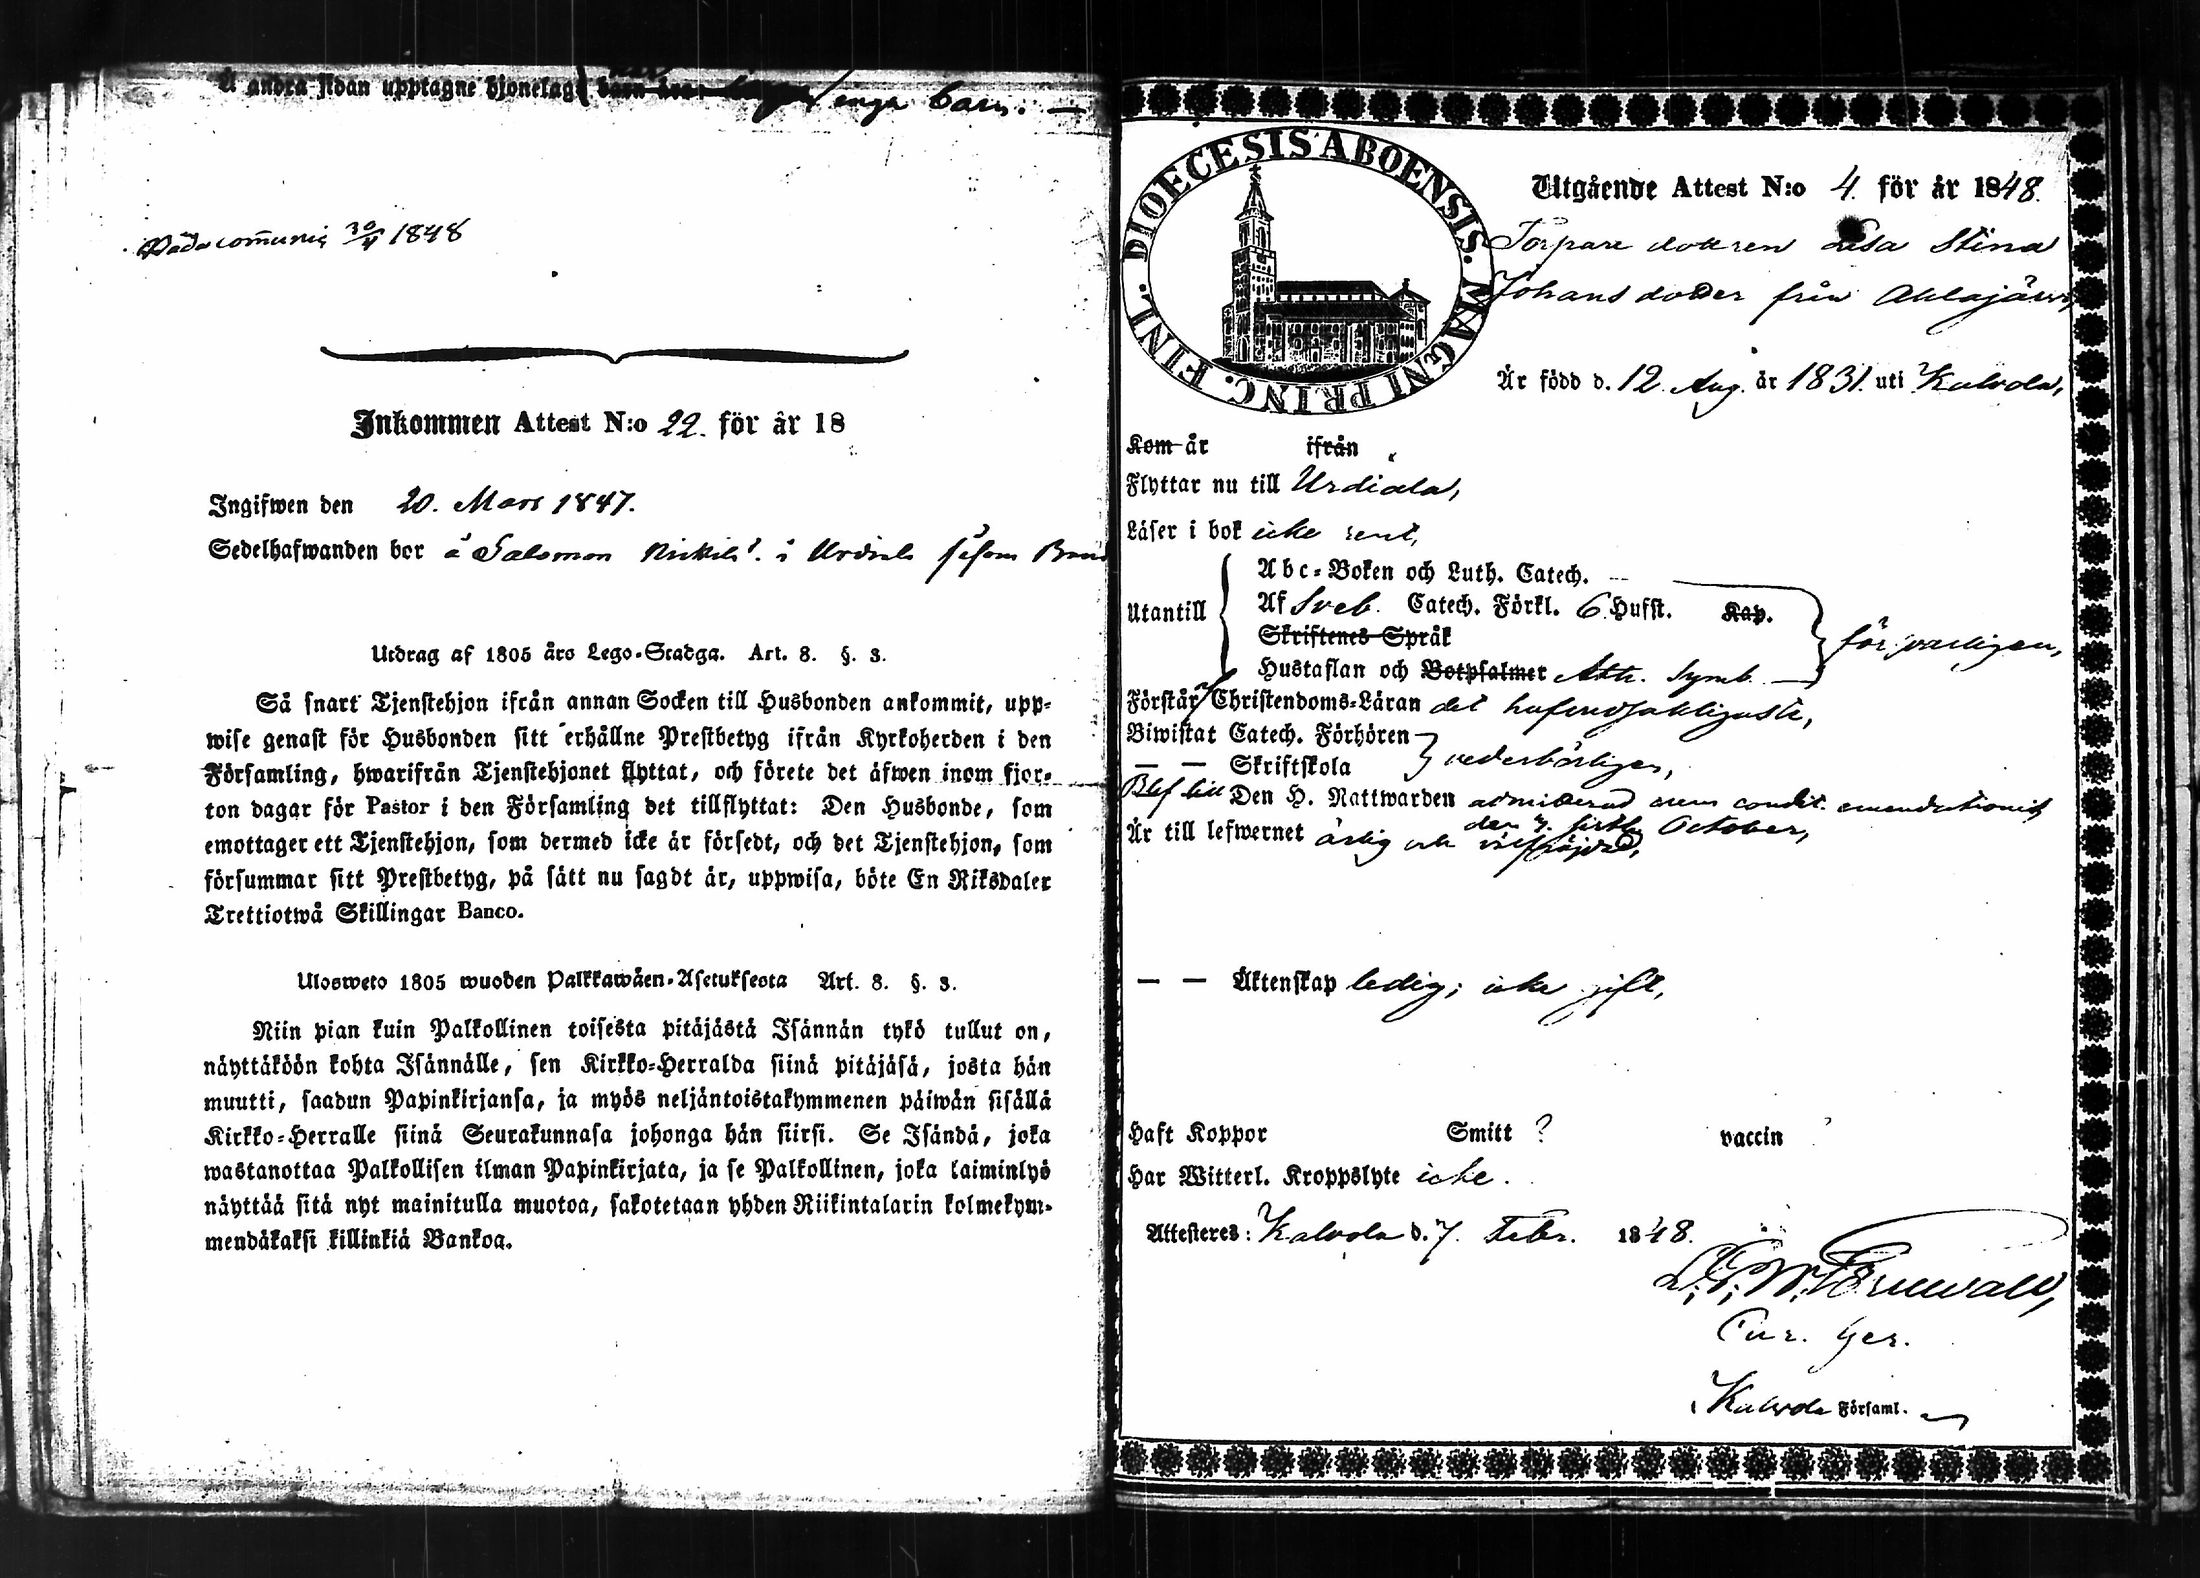 Å andra sidan upptagne hjonelag barn inga barn. —
communis 30/4 1848
Inkommen Attest N:o 22. för år 18
Ingifwen den 20. Mars 1847.
Sedelhafwanden bor å Salomon Nickilä i Urdiala såsom
Utdrag af 1805 års Lego-Stadga. Art. 8. §. 3.
Så snart Tjenstehjon ifrån annan Socken till Husbonden ankommit, upp-
wise genast för Husbonden sitt erhållne Prestbetyg ifrån Kyrkoherden i den
Församling, hwarifrån Tjenstehjonet flyttat, och förete det äfwen inom fjor-
ton dagar för Pastor i den Församling det tillflyttat: Den Husbonde, som
emottager ett Tjenstehjon, som dermed icke är försedt, och det Tjenstehjon, som
försummar sitt Prestbetyg, på sätt nu sagdt är, uppwisa, böte En Riksdaler
Trettiotwå Skillingar Banco.
Ulosweto 1805 wuoden Palkkawäen-Asetuksesta Art. 8. §. 3.
Niin pian kuin Palkollinen toisesta pitäjästä Isännän tykö tullut on,
näyttäköön kohta Isännälle, sen Kirkko-Herralda siinä pitäjäsä, josta hän
muutti, saadun Papinkirjansa, ja myös neljäntoistakymmenen päiwän sisällä
Kirkko-Herralle siinä Seurakunnasa johonga hän siirsi. Se Isändä, joka
wastanottaa Palkollisen ilman Papinkirjata, ja se Palkollinen, joka laiminlyö
näyttää sitä nyt mainitulla muotoa, sakotetaan yhden Riikintalarin kolmekym-
mendäkaksi killinkiä Bankoa.
DIOECESIS ABOENSIS. MAGNI PRINC. FINL.
Utgående Attest N:o 4. för år 1848.
Torpare dottren Lisa Stina
Johansdotter från Ahlajärvi,
Är född d. 12. Aug. år 1831. uti Kalvola,
Kom år ifrån
Flyttar nu till Urdiala,
Läser i bok icke rent,
Utantill
Abc-Boken och Luth. Catech.
Af Sveb. Catech. Förkl. 6 Hufst. Kap.
Skriftenes Språk
Hustaflan och Botpsalmer Ath. Symb. försvarligen,
Förstår af Christendoms-Läran det hufvudsakligaste,
Biwistat Catech. Förhören
— — Skriftskola vederbörligen,
Blef till Den H. Nattwarden admitterad sum condit. emendationis
den 7. October,
Är till lefwernet ärlig och väl
— — Äktenskap ledig; icke gift,
Haft Koppor Smitt ? vaccin ?
Har Witterl. Kroppslyte icke.
Attesteres: Kalvola d. 7. Febr. 1848.
Cur. Ger.
i Kalvola Församl.